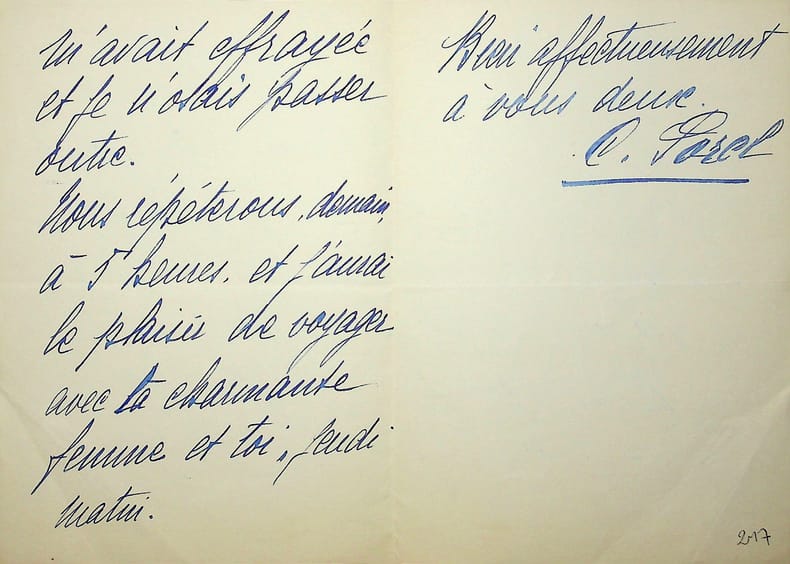 m'avait effrayée
et je n'osais passer
outre.
Nous répéterons, demain,
à 5 heures. et j'aurai
le plaisir de voyager
avec ta charmante
femme et toi, jeudi
matin.
Bien affectueusement
à vous deux.
C. Sorel
217